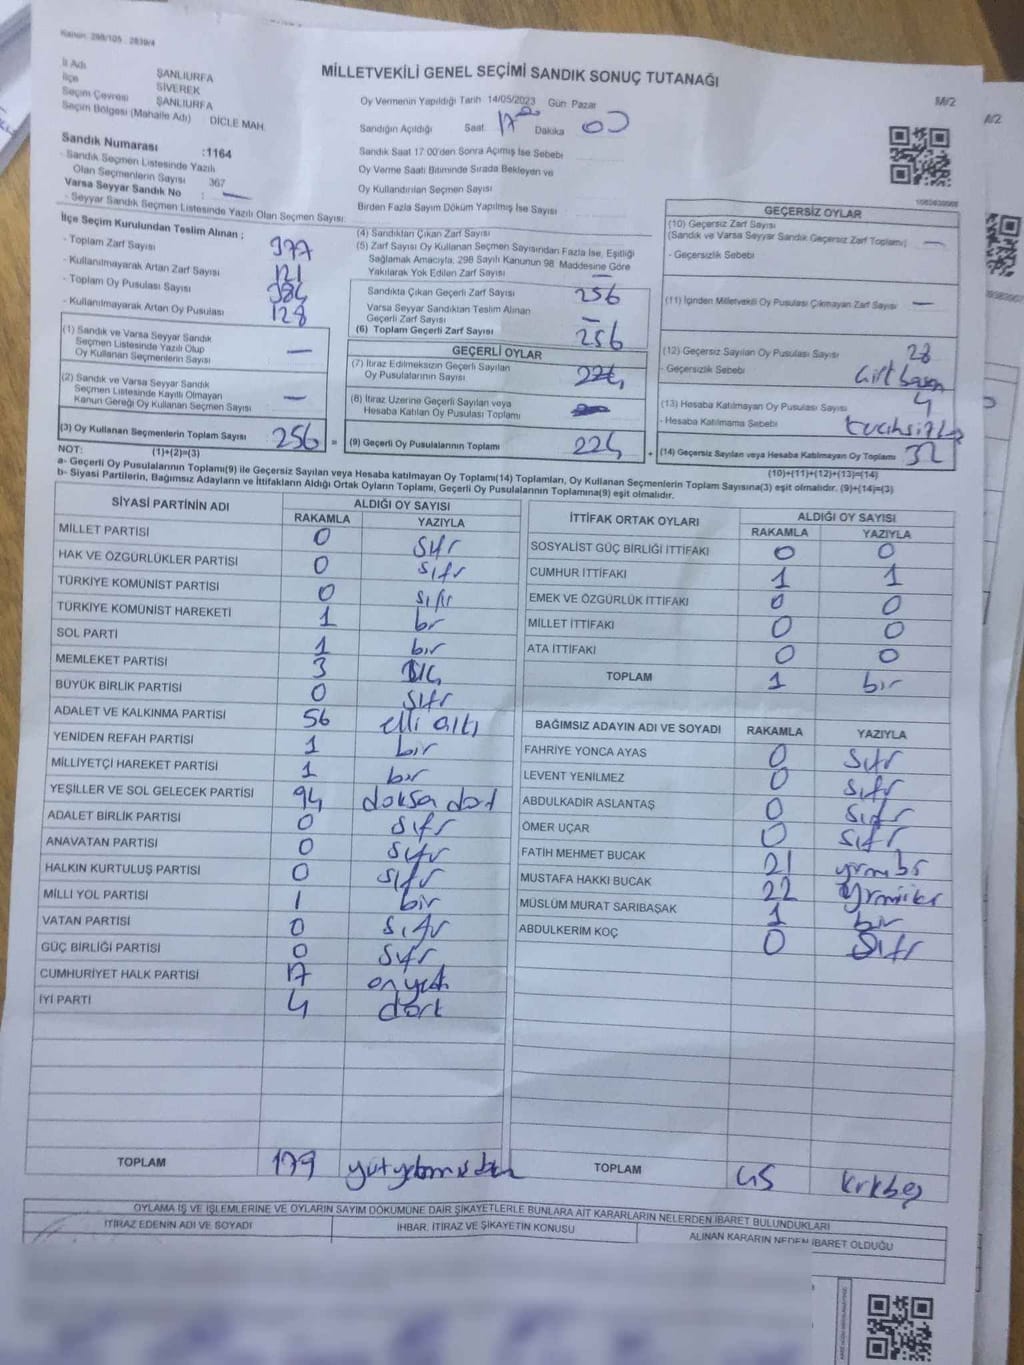 Kanun: 298/105 , 2839/4
MİLLETVEKİLİ GENEL SEÇİMİ SANDIK SONUÇ TUTANAĞI
M/2
İl Adı ŞANLIURFA
İlçe SİVEREK
Seçim Çevresi ŞANLIURFA
Seçim Bölgesi (Mahalle Adı) DİCLE MAH.
Oy Vermenin Yapıldığı Tarih 14/05/2023 Gün Pazar
Sandığın Açıldığı Saat 17 Dakika 00
Sandık Saat 17:00'den Sonra Açılmış İse Sebebi
Oy Verme Saati Bitiminde Sırada Bekleyen ve
Oy Kullandırılan Seçmen Sayısı
Birden Fazla Sayım Döküm Yapılmış İse Sayısı
Sandık Numarası :1164
- Sandık Seçmen Listesinde Yazılı
Olan Seçmenlerin Sayısı 367
Varsa Seyyar Sandık No : —
- Seyyar Sandık Seçmen Listesinde Yazılı Olan Seçmen Sayısı:
İlçe Seçim Kurulundan Teslim Alınan ;
- Toplam Zarf Sayısı 377
- Kullanılmayarak Artan Zarf Sayısı 121
- Toplam Oy Pusulası Sayısı 384
- Kullanılmayarak Artan Oy Pusulası 128
(1) Sandık ve Varsa Seyyar Sandık
Seçmen Listesinde Yazılı Olup
Oy Kullanan Seçmenlerin Sayısı —
(2) Sandık ve Varsa Seyyar Sandık
Seçmen Listesinde Kayıtlı Olmayan
Kanun Gereği Oy Kullanan Seçmen Sayısı —
(3) Oy Kullanan Seçmenlerin Toplam Sayısı 256 =
(1)+(2)=(3)
(4) Sandıktan Çıkan Zarf Sayısı
(5) Zarf Sayısı Oy Kullanan Seçmen Sayısından Fazla İse, Eşitliği
Sağlamak Amacıyla, 298 Sayılı Kanunun 98. Maddesine Göre
Yakılarak Yok Edilen Zarf Sayısı —
Sandıkta Çıkan Geçerli Zarf Sayısı 256
Varsa Seyyar Sandıktan Teslim Alınan
Geçerli Zarf Sayısı —
(6) Toplam Geçerli Zarf Sayısı 256
GEÇERLİ OYLAR
(7) İtiraz Edilmeksizin Geçerli Sayılan
Oy Pusulalarının Sayısı 224
(8) İtiraz Üzerine Geçerli Sayılan veya
Hesaba Katılan Oy Pusulası Toplamı
(9) Geçerli Oy Pusulalarının Toplamı 224 +
GEÇERSİZ OYLAR
(10) Geçersiz Zarf Sayısı
(Sandık ve Varsa Seyyar Sandık Geçersiz Zarf Toplamı) —
- Geçersizlik Sebebi
(11) İçinden Milletvekili Oy Pusulası Çıkmayan Zarf Sayısı —
(12) Geçersiz Sayılan Oy Pusulası Sayısı 28
- Geçersizlik Sebebi
(13) Hesaba Katılmayan Oy Pusulası Sayısı 4
- Hesaba Katılmama Sebebi
(14) Geçersiz Sayılan veya Hesaba Katılmayan Oy Toplamı 32
(10)+(11)+(12)+(13)=(14)
NOT:
a- Geçerli Oy Pusulalarının Toplamı(9) ile Geçersiz Sayılan veya Hesaba katılmayan Oy Toplam(14) Toplamları, Oy Kullanan Seçmenlerin Toplam Sayısına(3) eşit olmalıdır. (9)+(14)=(3)
b- Siyasi Partilerin, Bağımsız Adayların ve İttifakların Aldığı Ortak Oyların Toplamı, Geçerli Oy Pusulalarının Toplamına(9) eşit olmalıdır.
SİYASİ PARTİNİN ADI ALDIĞI OY SAYISI
RAKAMLA YAZIYLA
MİLLET PARTİSİ 0 sıfır
HAK VE ÖZGÜRLÜKLER PARTİSİ 0 sıfır
TÜRKİYE KOMÜNİST PARTİSİ 0 sıfır
TÜRKİYE KOMÜNİST HAREKETİ 1 bir
SOL PARTİ 1 bir
MEMLEKET PARTİSİ 3 üç
BÜYÜK BİRLİK PARTİSİ 0 sıfır
ADALET VE KALKINMA PARTİSİ 56 elli altı
YENİDEN REFAH PARTİSİ 1 bir
MİLLİYETÇİ HAREKET PARTİSİ 1 bir
YEŞİLLER VE SOL GELECEK PARTİSİ 94 doksa dört
ADALET BİRLİK PARTİSİ 0 sıfır
ANAVATAN PARTİSİ 0 sıfır
HALKIN KURTULUŞ PARTİSİ 0 sıfır
MİLLİ YOL PARTİSİ 1 bir
VATAN PARTİSİ 0 sıfır
GÜÇ BİRLİĞİ PARTİSİ 0 sıfır
CUMHURİYET HALK PARTİSİ 17 onyedi
İYİ PARTİ 4 dört
TOPLAM 179
İTTİFAK ORTAK OYLARI ALDIĞI OY SAYISI
RAKAMLA YAZIYLA
SOSYALİST GÜÇ BİRLİĞİ İTTİFAKI 0 0
CUMHUR İTTİFAKI 1 1
EMEK VE ÖZGÜRLÜK İTTİFAKI 0 0
MİLLET İTTİFAKI 0 0
ATA İTTİFAKI 0 0
TOPLAM 1 bir
BAĞIMSIZ ADAYIN ADI VE SOYADI RAKAMLA YAZIYLA
FAHRİYE YONCA AYAS 0 sıfır
LEVENT YENİLMEZ 0 sıfır
ABDULKADİR ASLANTAŞ 0 sıfır
ÖMER UÇAR 0 sıfır
FATİH MEHMET BUCAK 21 yirmibir
MUSTAFA HAKKI BUCAK 22 yirmiiki
MÜSLÜM MURAT SARIBAŞAK 1 bir
ABDULKERİM KOÇ 0 sıfır
TOPLAM 45 kırkbeş
OYLAMA İŞ VE İŞLEMLERİNE VE OYLARIN SAYIM DÖKÜMÜNE DAİR ŞİKAYETLERLE BUNLARA AİT KARARLARIN NELERDEN İBARET BULUNDUKLARI
İTİRAZ EDENİN ADI VE SOYADI İHBAR, İTİRAZ VE ŞİKAYETİN KONUSU ALINAN KARARIN NEDEN İBARET OLDUĞU